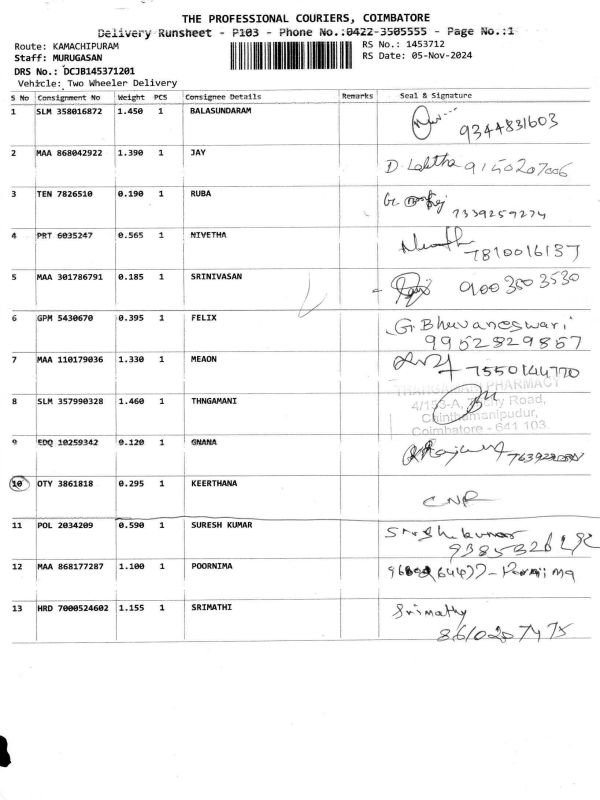 THE PROFESSIONAL COURIERS, COIMBATORE
Delivery Runsheet - P103 - Phone No.:0422-3505555 - Page No.:1
Route: KAMACHIPURAM
RS No.: 1453712
Staff: MURUGASAN
RS Date: 05-Nov-2024
DRS No.: DCJB145371201
Vehicle: Two Wheeler Delivery
S No Consignment No Weight PCS Consignee Details Remarks Seal & Signature
1 SLM 358016872 1.450 1 BALASUNDARAM
9344831603
2 MAA 868042922 1.390 1 JAY
D. Lalitha 9150207006
3 TEN 7826510 0.190 1 RUBA
7339259274
4 PRT 6035247 0.565 1 NIVETHA
7810016137
5 MAA 301786791 0.185 1 SRINIVASAN
9003803530
6 GPM 5430670 0.395 1 FELIX
G. Bhuvaneswari
9952829857
7 MAA 110179036 1.330 1 MEAON
7550144770
PHARMACY
8 SLM 357990328 1.460 1 THNGAMANI
4/153-A, Road,
Chinthamanipudur,
Coimbatore - 641 103.
9 EDQ 10259342 0.120 1 GNANA
10 OTY 3861818 0.295 1 KEERTHANA
CNR
11 POL 2034209 0.590 1 SURESH KUMAR
12 MAA 868177287 1.100 1 POORNIMA
13 HRD 7000524602 1.155 1 SRIMATHI
Srimathy
8610207475